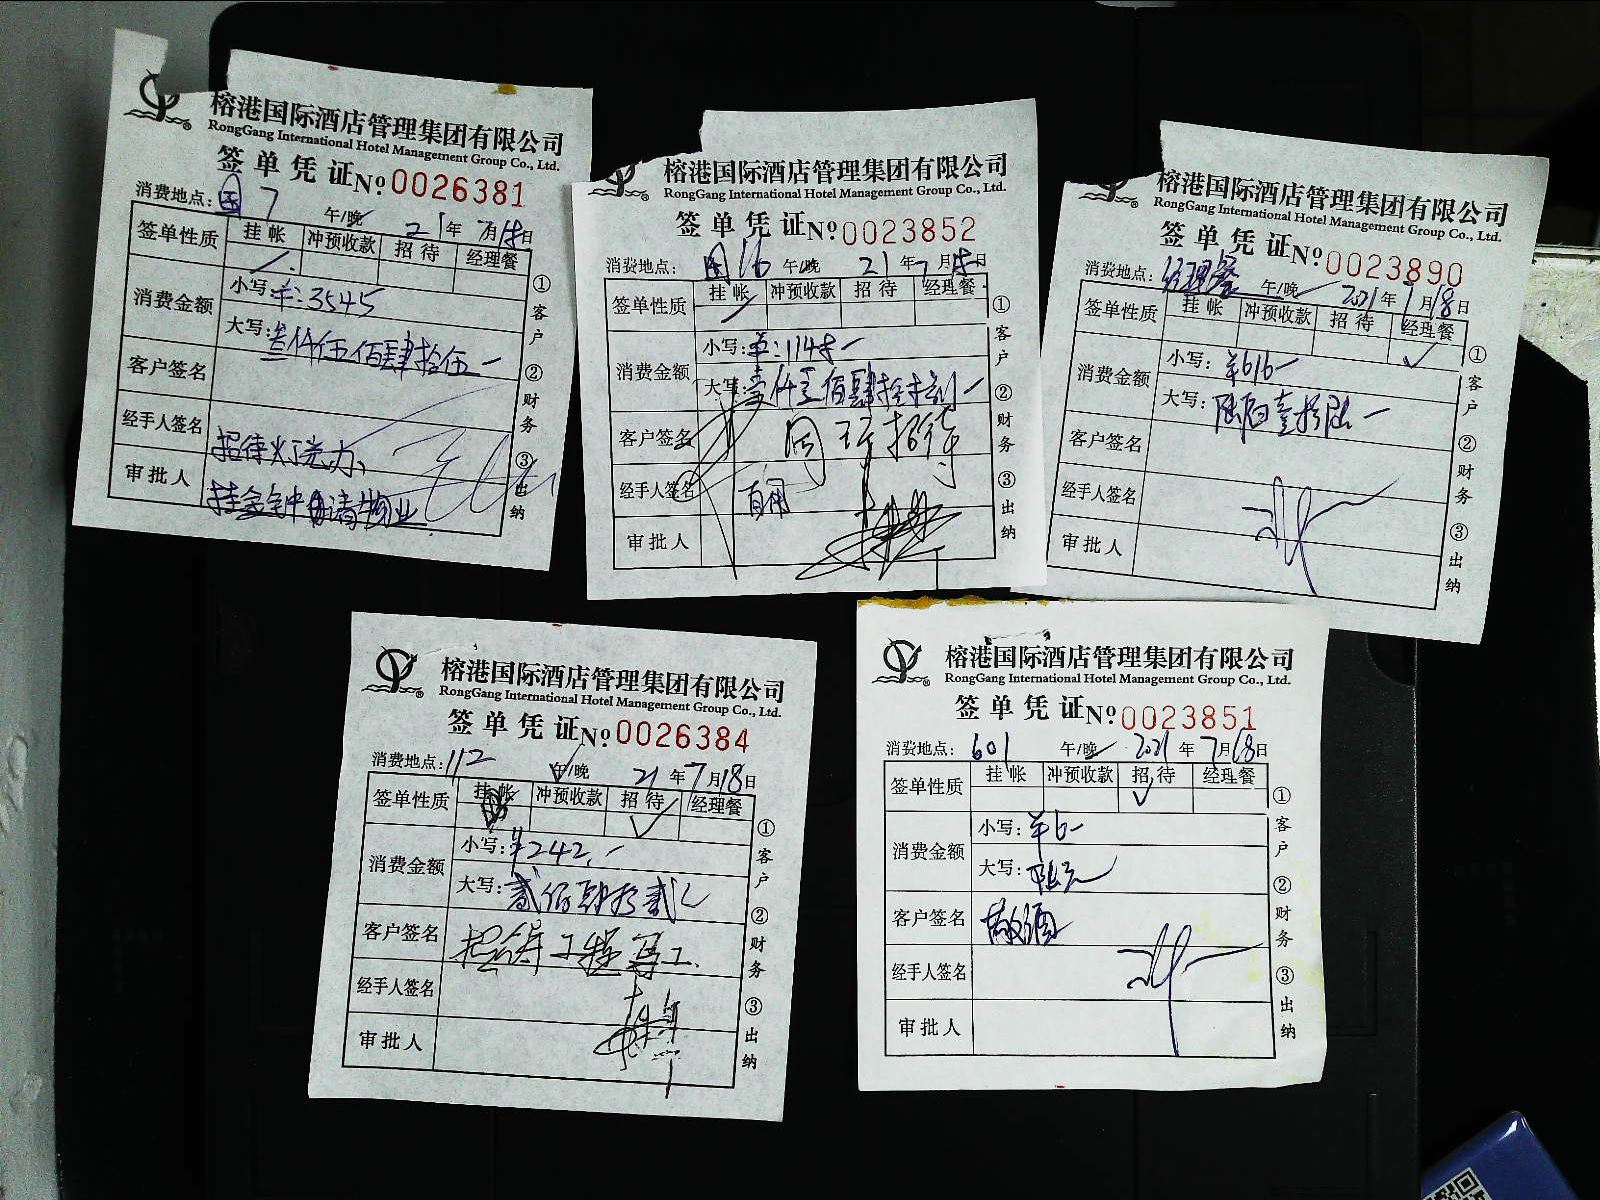 榕港国际酒店管理集团有限公司
RongGang International Hotel Management Group Co., Ltd.
签单凭证 №0026381
消费地点: 国7 午/晚 21年7月18日
签单性质 挂帐 冲预收款 招待 经理餐
消费金额 小写: ¥:3545
大写: 叁仟伍佰肆拾伍
客户签名
经手人签名 招待灯光办、
审批人
①客户 ②财务 ③出纳
榕港国际酒店管理集团有限公司
RongGang International Hotel Management Group Co., Ltd.
签单凭证 №0023852
消费地点: 国16 午/晚 21年7月18日
签单性质 挂帐 冲预收款 招待 经理餐
消费金额 小写:
大写:
客户签名 招待
经手人签名
审批人
①客户 ②财务 ③出纳
榕港国际酒店管理集团有限公司
RongGang International Hotel Management Group Co., Ltd.
签单凭证 №0023890
消费地点: 经理餐 午/晚 2021年7月18日
签单性质 挂帐 冲预收款 招待 经理餐
✓
消费金额 小写: ¥616
大写: 陆佰壹拾陆
客户签名
经手人签名
审批人
①客户 ②财务 ③出纳
榕港国际酒店管理集团有限公司
RongGang International Hotel Management Group Co., Ltd.
签单凭证 №0026384
消费地点: 112 午/晚 21年7月18日
签单性质 挂帐 冲预收款 招待 经理餐
✓
消费金额 小写: ¥242.-
大写: 贰佰肆拾贰
客户签名 招待工程 工.
经手人签名
审批人
①客户 ②财务 ③出纳
榕港国际酒店管理集团有限公司
RongGang International Hotel Management Group Co., Ltd.
签单凭证 №0023851
消费地点: 601 午/晚 2021年7月18日
签单性质 挂帐 冲预收款 招待 经理餐
✓
消费金额 小写: ¥6-
大写: 陆元
客户签名 散酒
经手人签名
审批人
①客户 ②财务 ③出纳